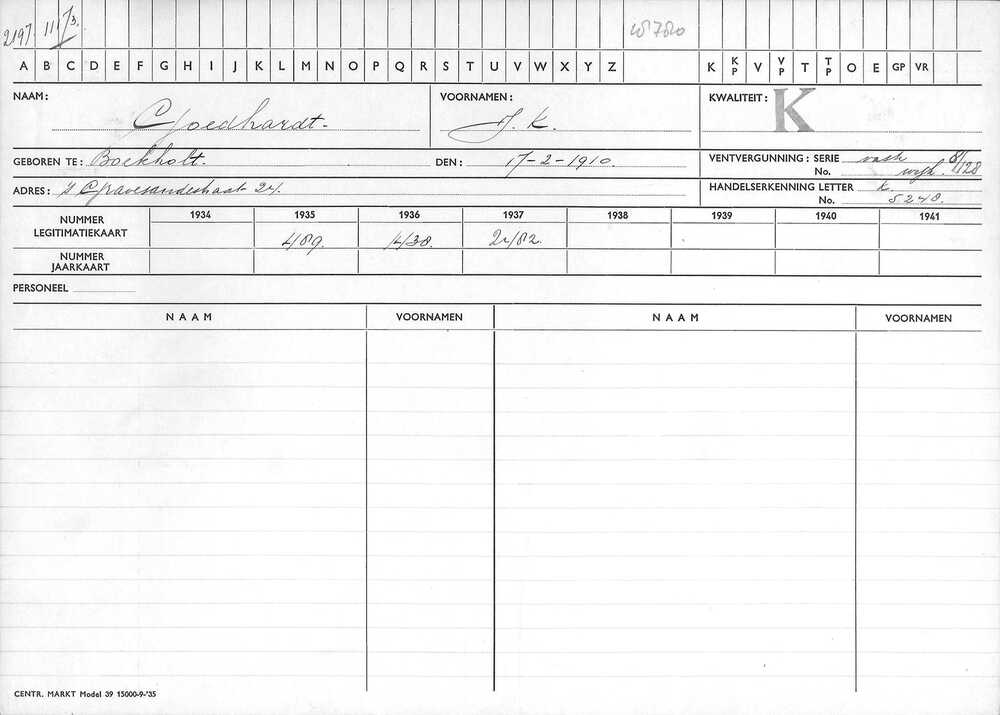 2197. III 73.
A B C D E F G H I J K L M N O P Q R S T U V W X Y Z K KP V VP T TP O E GP VR
NAAM: Goedhardt. VOORNAMEN: J. K. KWALITEIT: K
GEBOREN TE: Boekholt. DEN: 17-2-1910. VENTVERGUNNING: SERIE vash
No. wyh. 8/128
ADRES: 's Gravesandestraat 24. HANDELSERKENNING LETTER K.
No. 5248.
1934 1935 1936 1937 1938 1939 1940 1941
NUMMER LEGITIMATIEKAART 489. 1430. 2482.
NUMMER JAARKAART
PERSONEEL
NAAM VOORNAMEN NAAM VOORNAMEN
CENTR. MARKT Model 39 15000-9-'35